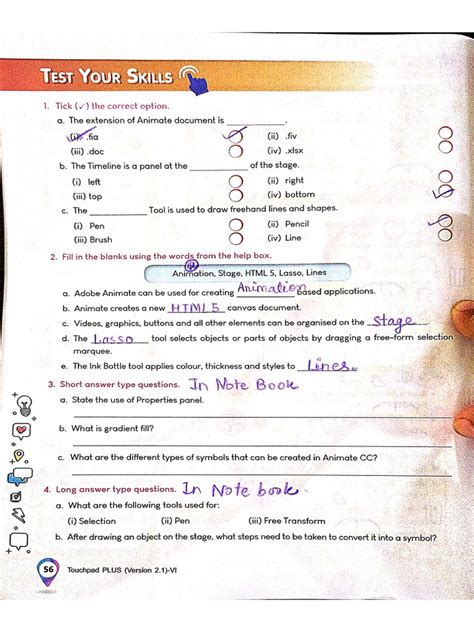 TEST YOUR SKILLS
1. Tick (✓) the correct option.
a. The extension of Animate document is ____________.
(i) .fla (ii) .fiv
(iii) .doc (iv) .xlsx
b. The Timeline is a panel at the ____________ of the stage.
(i) left (ii) right
(iii) top (iv) bottom
c. The ____________ Tool is used to draw freehand lines and shapes.
(i) Pen (ii) Pencil
(iii) Brush (iv) Line
2. Fill in the blanks using the words from the help box.
Animation, Stage, HTML 5, Lasso, Lines
a. Adobe Animate can be used for creating Animation based applications.
b. Animate creates a new HTML5 canvas document.
c. Videos, graphics, buttons and all other elements can be organised on the Stage.
d. The Lasso tool selects objects or parts of objects by dragging a free-form selection
marquee.
e. The Ink Bottle tool applies colour, thickness and styles to Lines.
3. Short answer type questions. In Note Book
a. State the use of Properties panel.
b. What is gradient fill?
c. What are the different types of symbols that can be created in Animate CC?
4. Long answer type questions. In Note book.
a. What are the following tools used for:
(i) Selection (ii) Pen (iii) Free Transform
b. After drawing an object on the stage, what steps need to be taken to convert it into a symbol?
56 Touchpad PLUS (Version 2.1)-VI